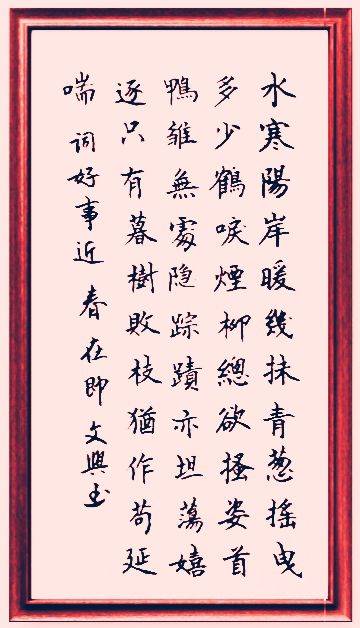 水寒陽岸暖幾抹青葱搖曳
多少鶴唳煙柳總欲搔姿首
鴨雛無處隐踪蹟亦坦蕩嬉
逐只有暮樹敗枝猶作苟延
喘 詞好事近 春在即 文興